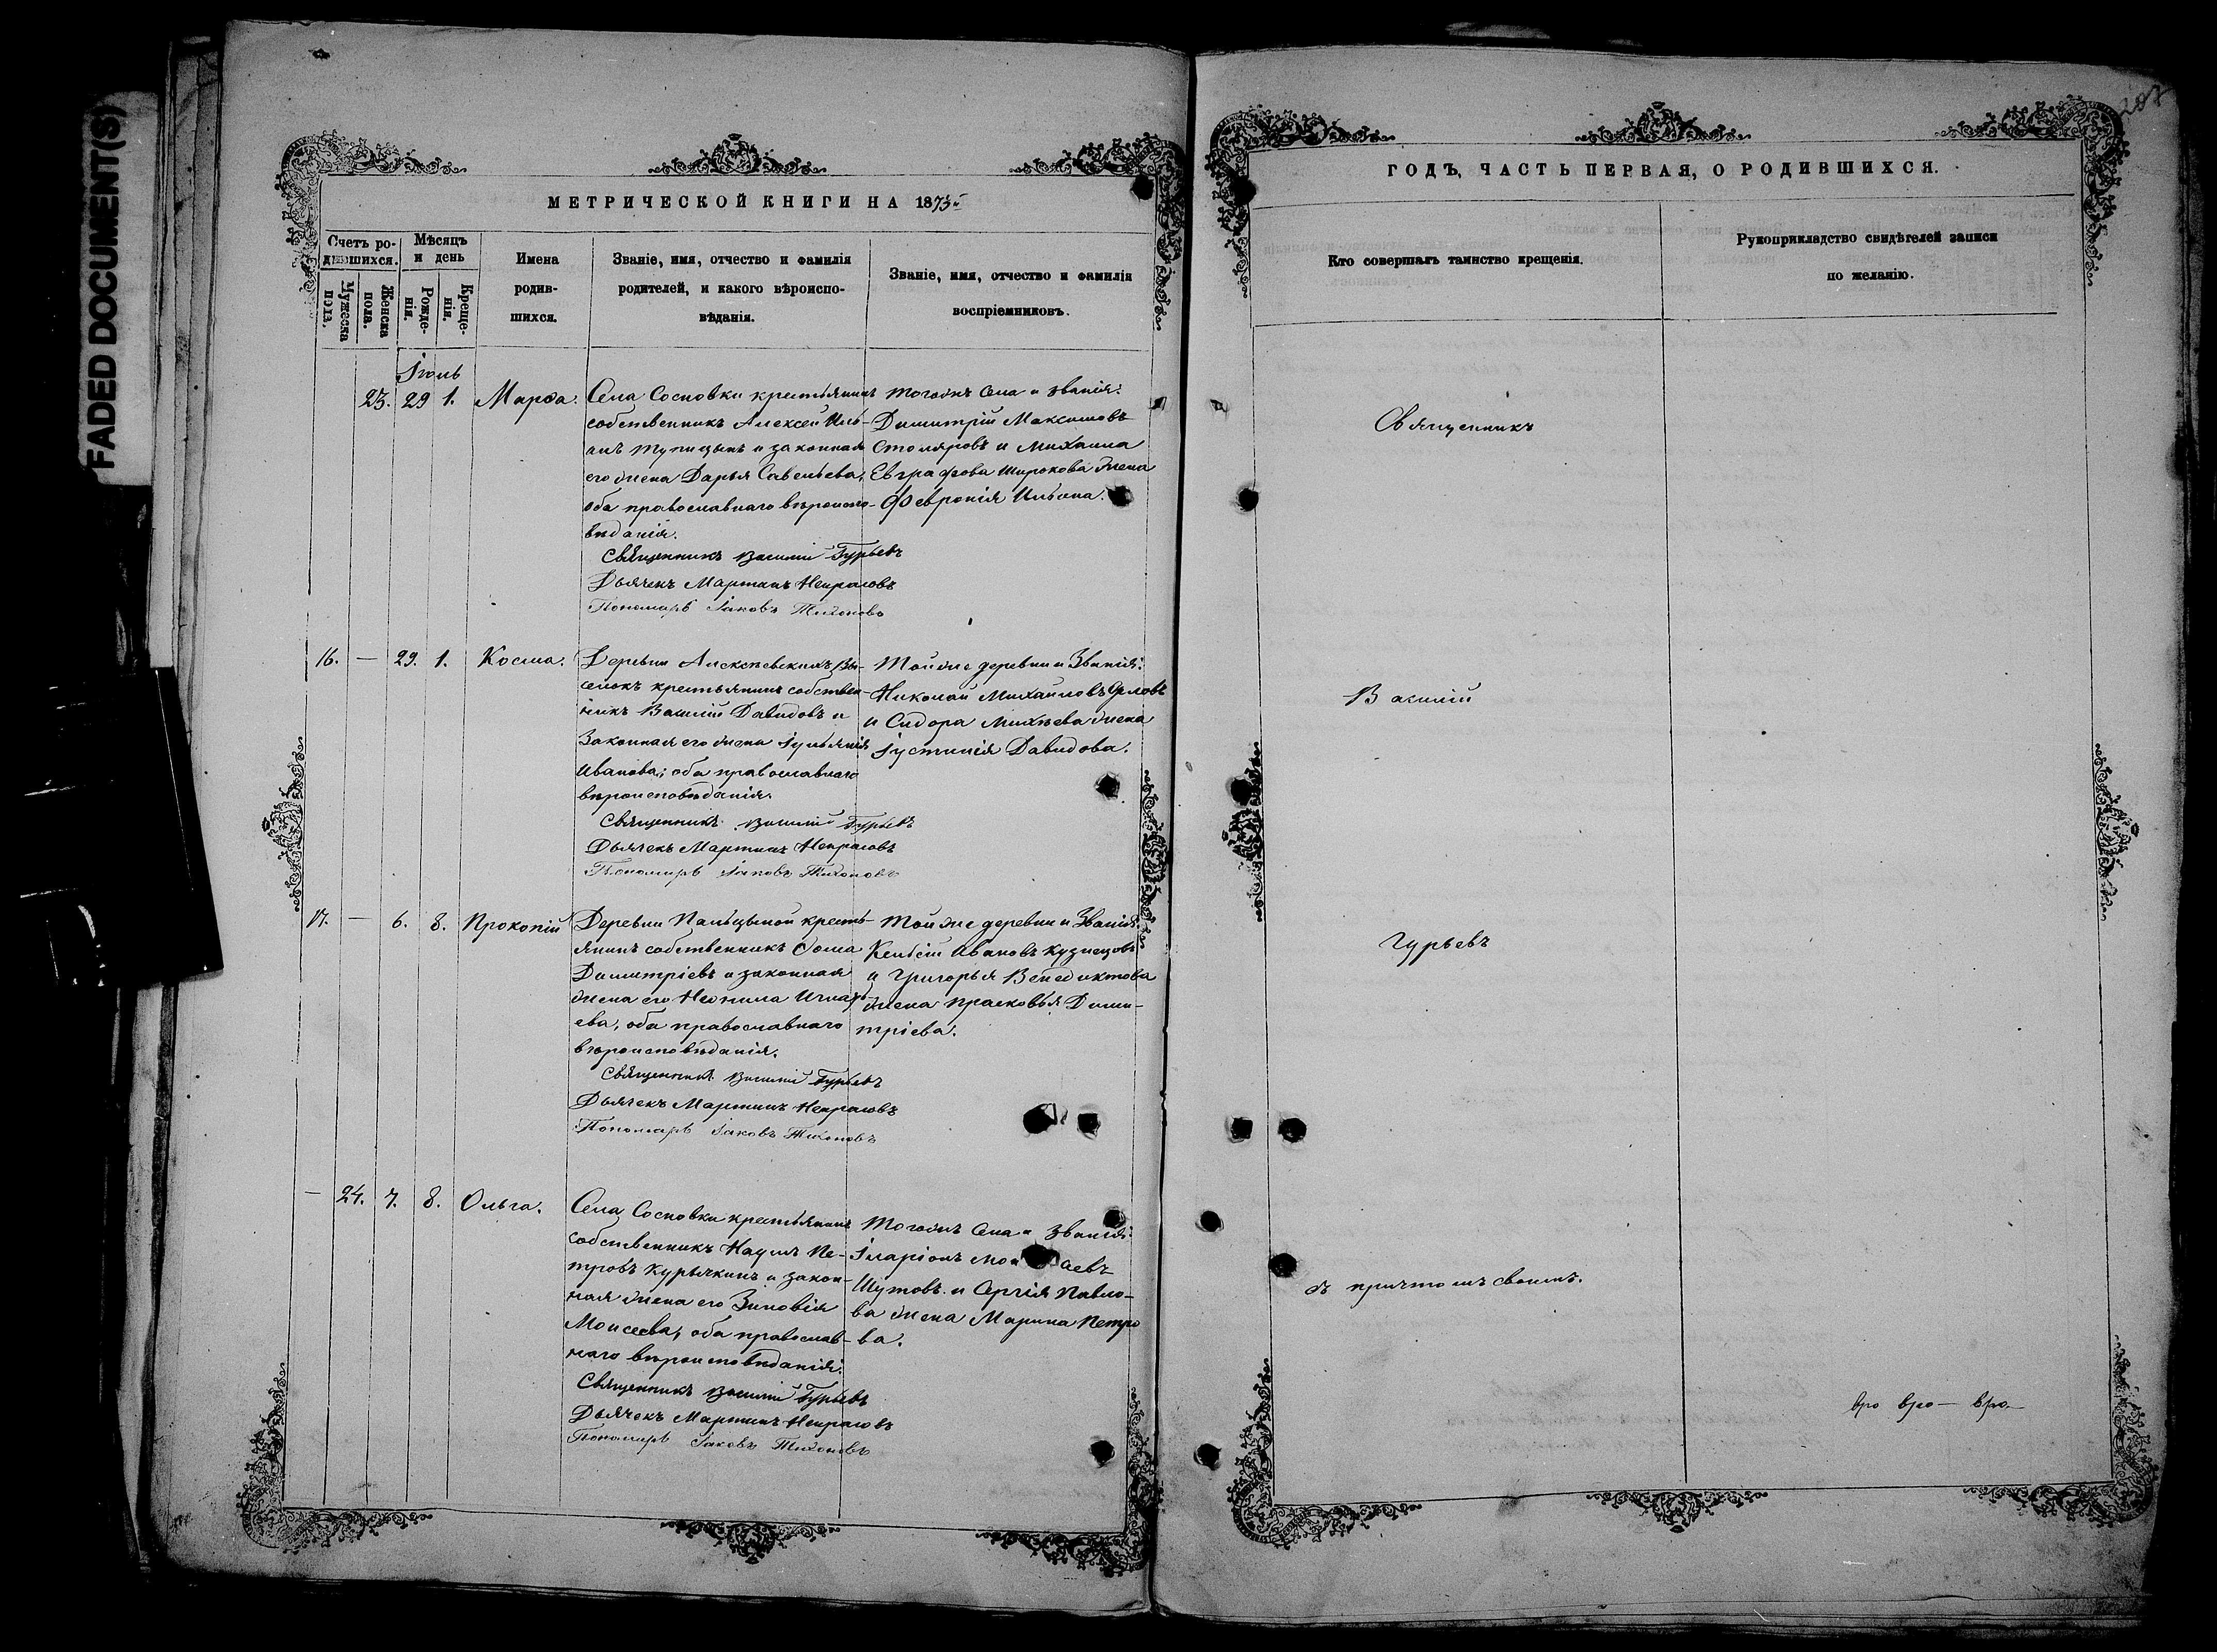 FADED DOCUMENT(S)
МЕТРИЧЕСКОЙ КНИГИ НА 1873
Счетъ ро-
дившихся.
Мѣсяцъ
и день
Мужеска
пола.
Женска
пола.
Рожде-
нія.
Креще-
нія.
Имена
родив-
шихся.
Званіе, имя, отчество и фамилія
родителей, и какого вѣроиспо-
вѣданія.
Званіе, имя, отчество и фамилія
воспріемниковъ.
23. 29 1. Марѳа.
Села Сосновки крестьянинъ
собственникъ Алексей Иль-
инъ Тупицынъ и законная
его жена Дарья Савельева,
оба православнаго вѣроиспо-
вѣданія.
Священникъ Василій Гурьевъ
Дьячекъ Мартинъ Некрасовъ
Пономарь Іаковъ Тихоновъ
Тогожъ Села и званія:
Димитрій Максимовъ
Столяровъ и Михаила
Евграфова Широкова жена
Февронія Ильина.
16. — 29. 1. Косма.
Деревни Алексѣевскихъ Вы-
селокъ крестьянинъ собствен-
никъ Василій Давидовъ и
Законная его жена Іульянія
Иванова; оба православнаго
вѣроисповѣданія.
Священникъ Василій Гурьевъ
Дьячекъ Мартинъ Некрасовъ
Пономарь Іаковъ Тихоновъ
Той же деревни и Званія:
Николай Михайловъ Орловъ
и Сидора Михѣева жена
Іустинія Давидова.
17. — 6. 8. Прокопій
Деревни Пальцыной кресть-
янинъ собственникъ Ѳома
Димитріевъ и законная
жена его Неонила Игнать-
ева, оба православнаго
вѣроисповѣданія.
Священникъ Василій Гурьевъ
Дьячекъ Мартинъ Некрасовъ
Пономарь Іаковъ Тихоновъ
Той же деревни и Званія:
Ивановъ Кузнецовъ
и Григорья Венедиктова
жена Прасковья Дими-
тріева.
— 24. 7. 8. Ольга.
Села Сосновки крестьянинъ
собственникъ Наумъ Пе-
тровъ Курячкинъ и закон-
ная жена его Зиновія
Моисеева, оба православ-
наго вѣроисповѣданія:
Священникъ Василій Гурьевъ
Дьячекъ Мартинъ Некрасовъ
Пономарь Іаковъ Тихоновъ
Тогожъ Села и званія:
Іларіонъ
Шутовъ и Сергія Павло-
ва жена Марина Петро
ва.
ГОДЪ, ЧАСТЬ ПЕРВАЯ, О РОДИВШИХСЯ.
Кто совершалъ таинство крещенія.
Рукоприкладство свидѣтелей записи
по желанію.
Священникъ
Василій
Гурьевъ
съ причтомъ своимъ.